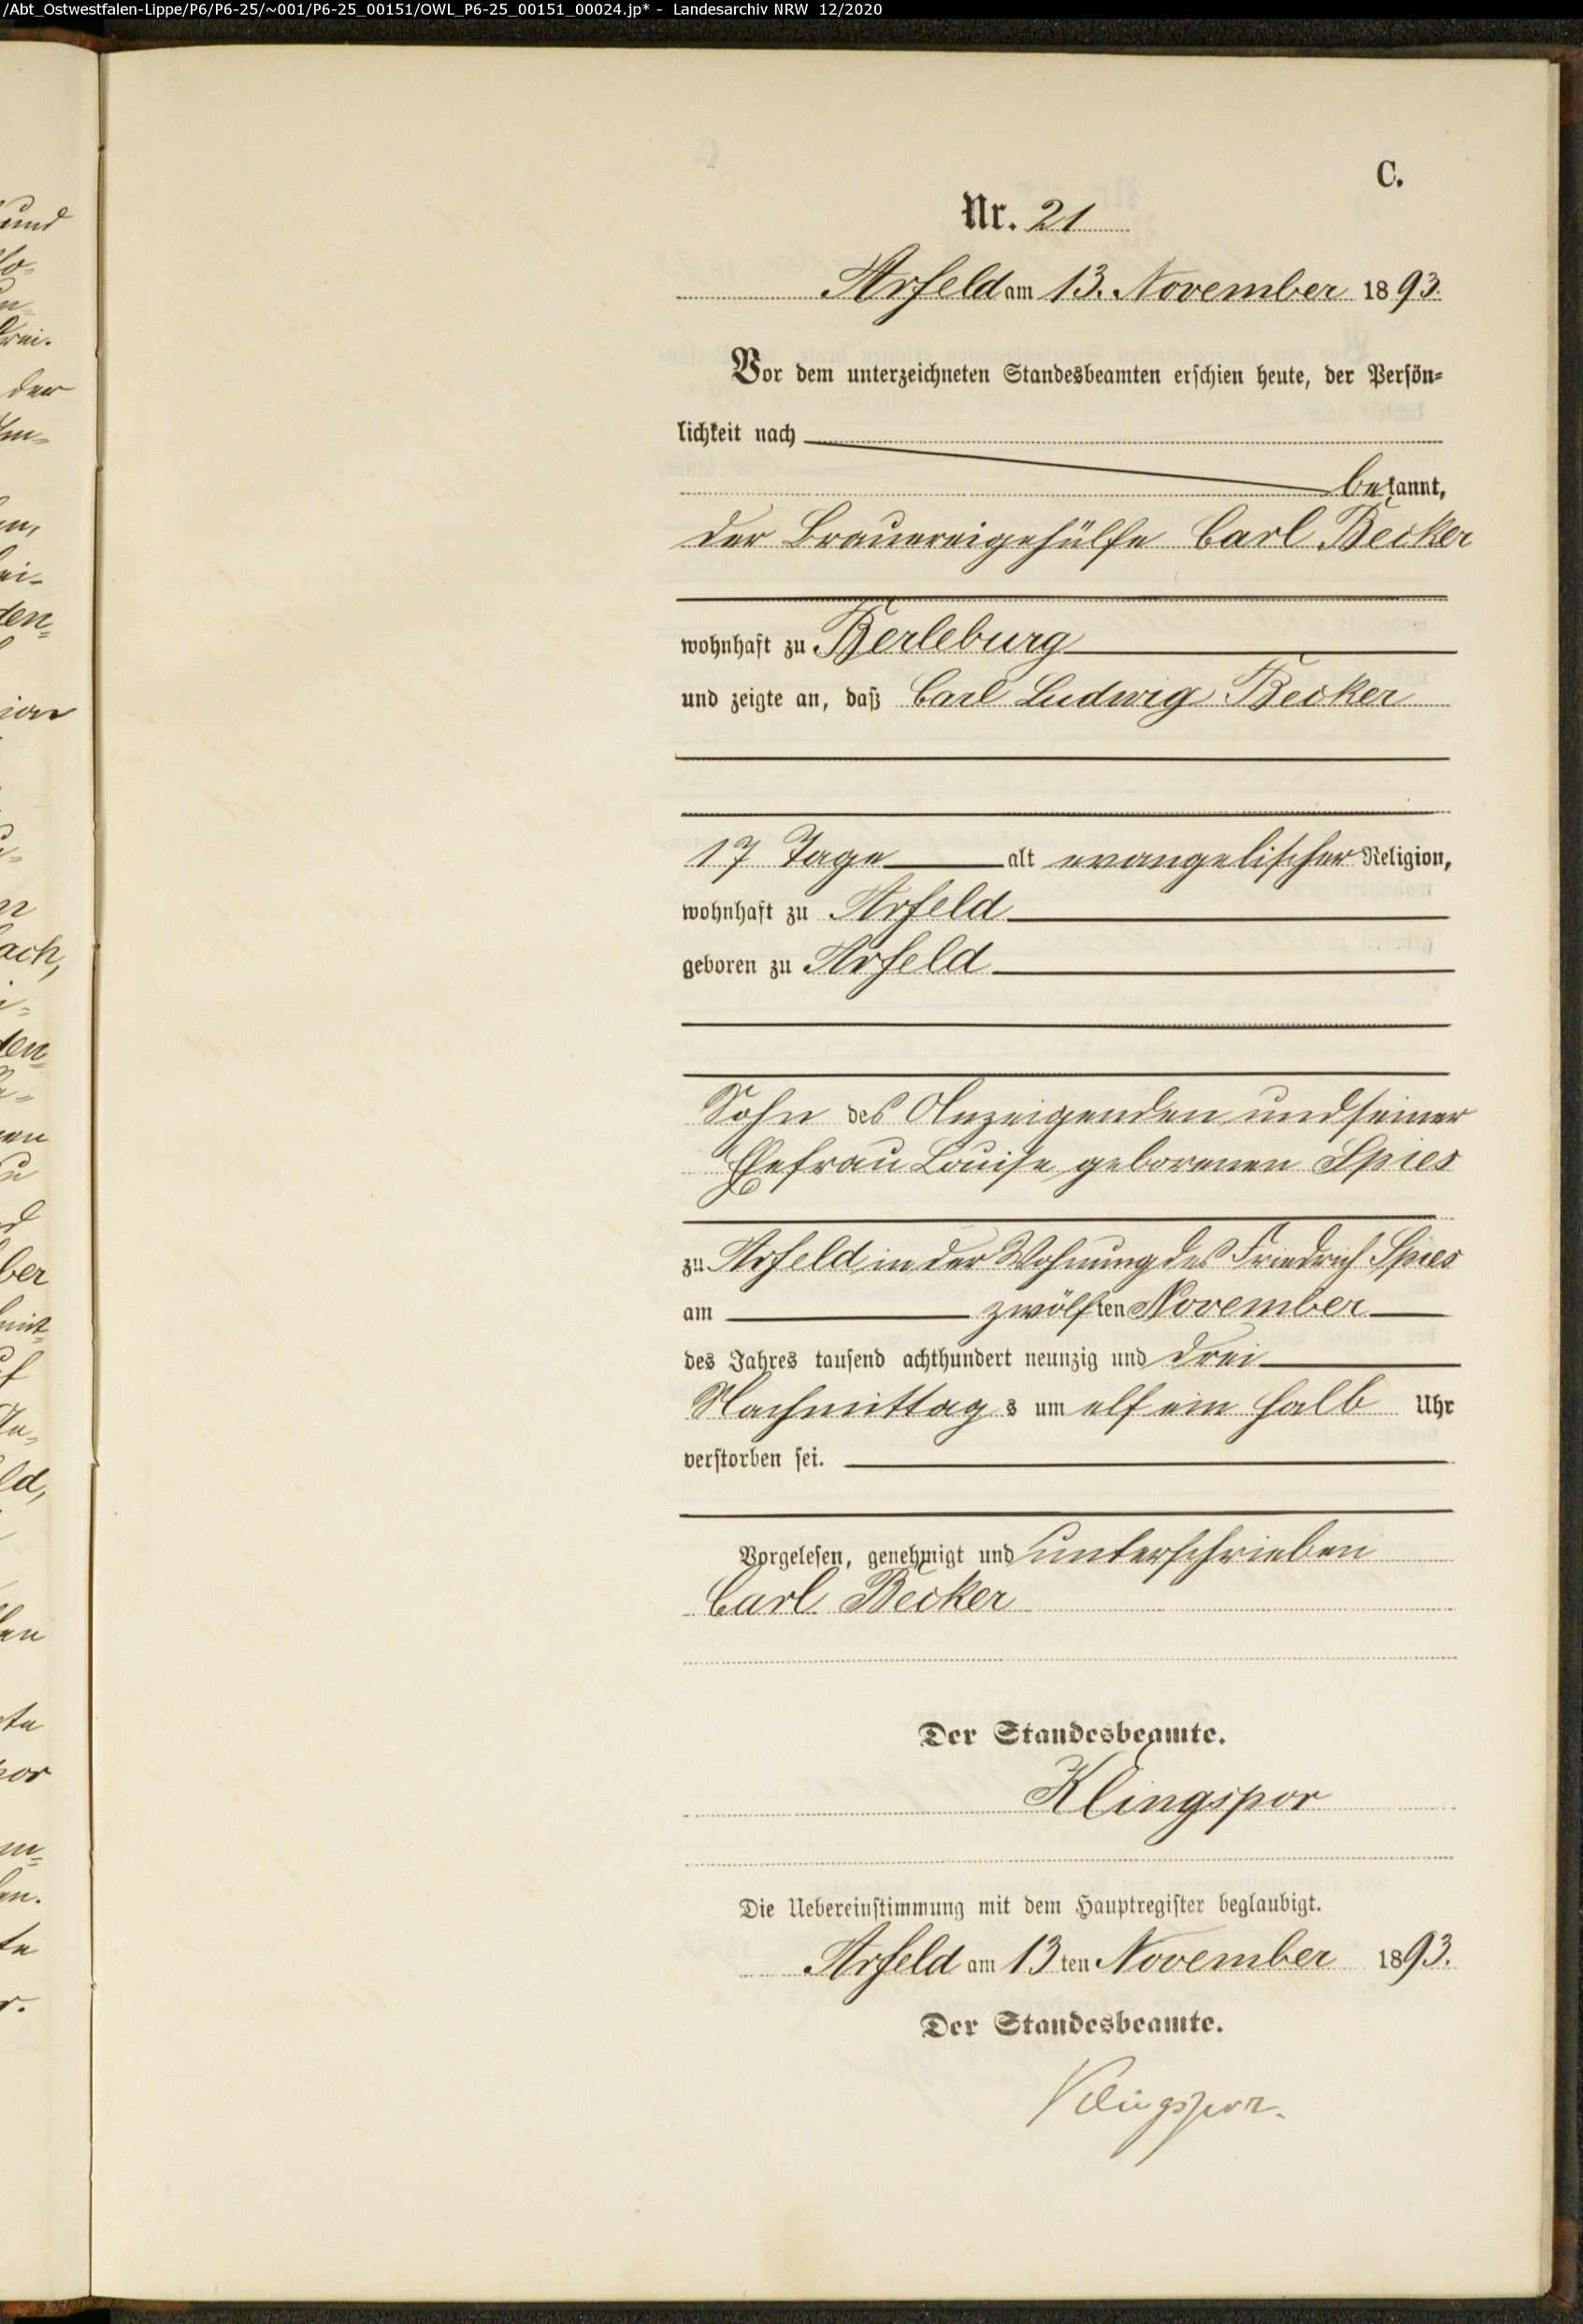 /Abt_Ostwestfalen-Lippe/P6/P6-25/~001/P6-25_00151/OWL_P6-25_00151_00024.jp* - Landesarchiv NRW 12/2020
C.
Nr. 21
Arfeld am 13. November 1893.
Vor dem unterzeichneten Standesbeamten erschien heute, der Persön=
lichkeit nach
bekannt,
der Brauereigehülfe Carl Becker
wohnhaft zu Berleburg
und zeigte an, daß Carl Ludwig Becker
17 Tage alt evangelischer Religion,
wohnhaft zu Arfeld
geboren zu Arfeld
Sohn des Anzeigenden und seiner
Ehefrau Louise geborenen Spies
zu Arfeld in der Wohnung des Friedrich Spies
am zwölften November
des Jahres tausend achthundert neunzig und drei
Nachmittags um elf ein halb Uhr
verstorben sei.
Vorgelesen, genehmigt und unterschrieben
Carl Becker
Der Standesbeamte.
Klingspor
Die Uebereinstimmung mit dem Hauptregister beglaubigt.
Arfeld am 13ten November 1893.
Der Standesbeamte.
Klingspor.